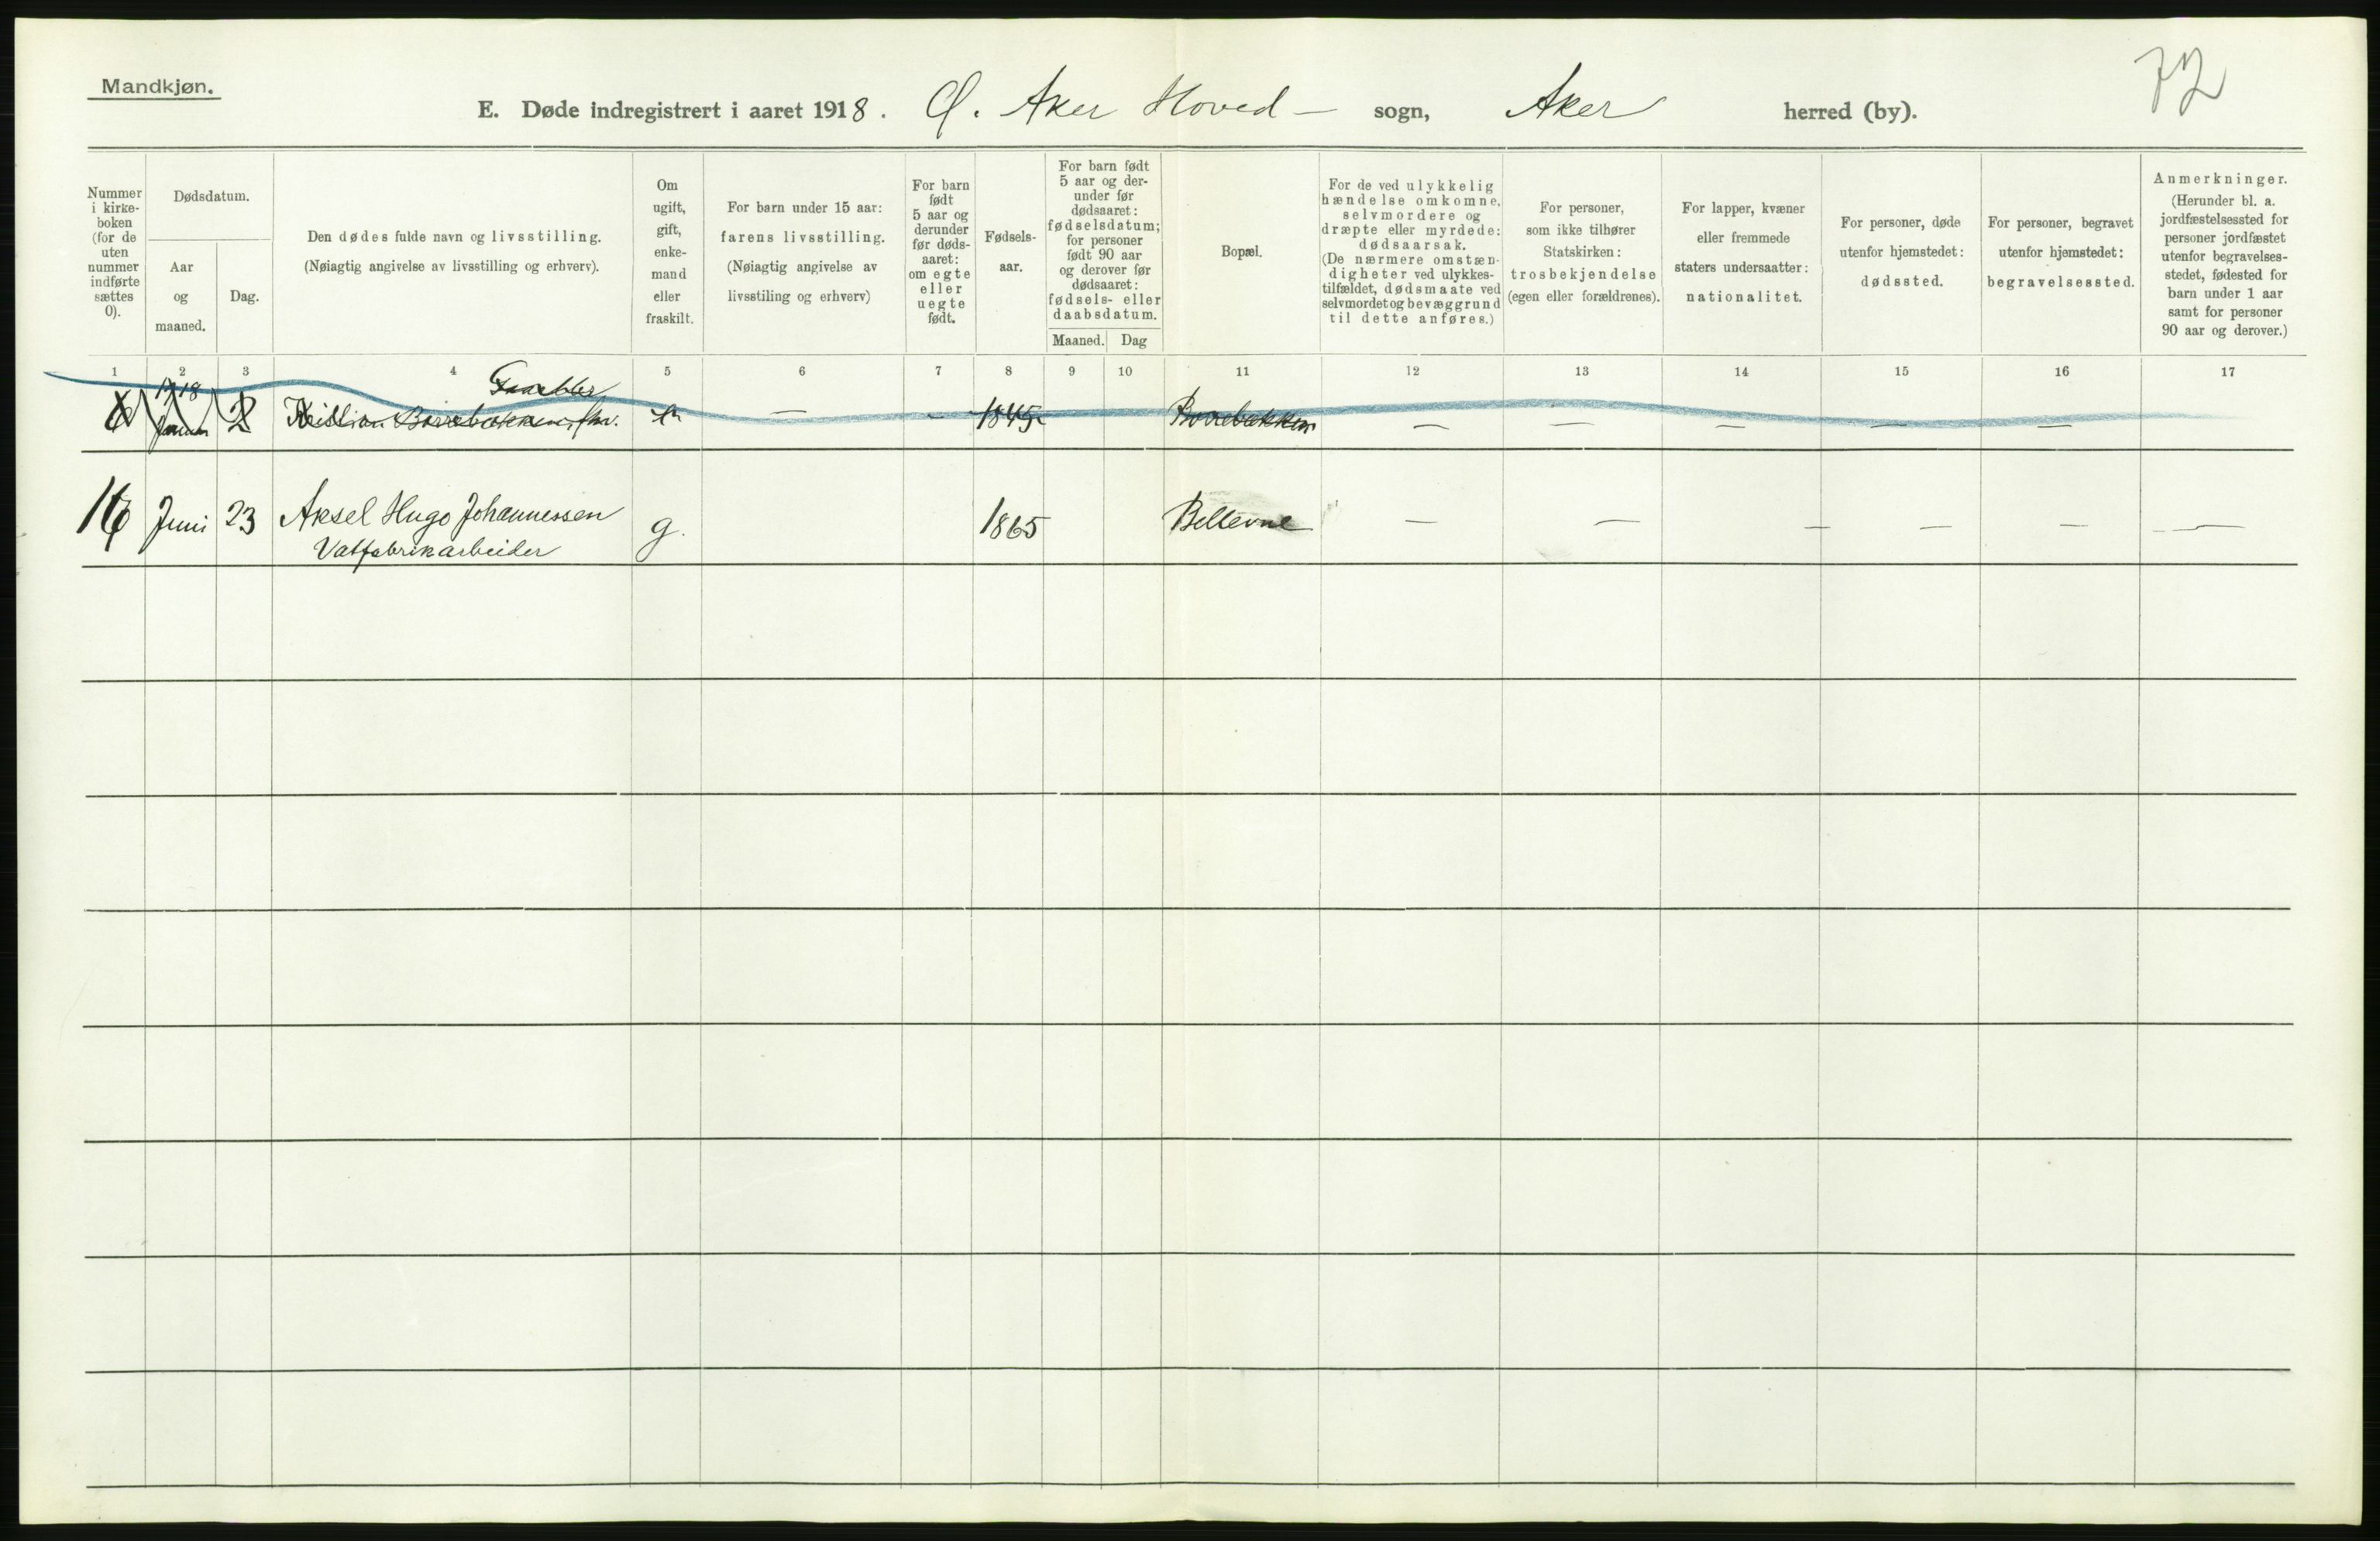 Mandkjøn.
72
E. Døde indregistrert i aaret 1918. Ø. Aker Hoved- sogn, Aker herred (by).
Nummer
i kirke-
boken
(for de
uten
nummer
indførte
sættes
0).
Dødsdatum.
Aar
og
maaned.
Dag.
Den dødes fulde navn og livsstilling.
(Nøiagtig angivelse av livsstilling og erhverv).
Om
ugift,
gift,
enke-
mand
eller
fraskilt.
For barn under 15 aar:
farens livsstilling.
(Nøiagtig angivelse av
livsstiling og erhverv)
For barn
født
5 aar og
derunder
før døds-
aaret:
om egte
eller
uegte
født.
Fødsels-
aar.
For barn født
5 aar og der-
under før
dødsaaret:
fødselsdatum;
for personer
født 90 aar
og derover før
dødsaaret:
fødsels- eller
daabsdatum.
Maaned. Dag
Bopæl.
For de ved ulykkelig
hændelse omkomne,
selvmordere og
dræpte eller myrdede:
dødsaarsak.
(De nærmere omstæn-
digheter ved ulykkes-
tilfældet, dødsmaate ved
selvmordet og bevæggrund
til dette anføres.)
For personer,
som ikke tilhører
Statskirken:
trosbekjendelse
(egen eller forældrenes).
For lapper, kvæner
eller fremmede
staters undersaatter:
nationalitet.
For personer, døde
utenfor hjemstedet:
dødssted.
For personer, begravet
utenfor hjemstedet:
begravelsessted.
Anmerkninger.
(Herunder bl. a.
jordfæstelsessted for
personer jordfæstet
utenfor begravelses-
stedet, fødested for
barn under 1 aar
samt for personer
90 aar og derover.)
1 2 3 4 5 6 7 8 9 10 11 12 13 14 15 16 17
1918
2 Kristian — - 1845 — — — — —
16 Juni 23 Aksel Hugo Johannessen g. 1865 Bellevue — — — — — —
Vatfabrikarbeider